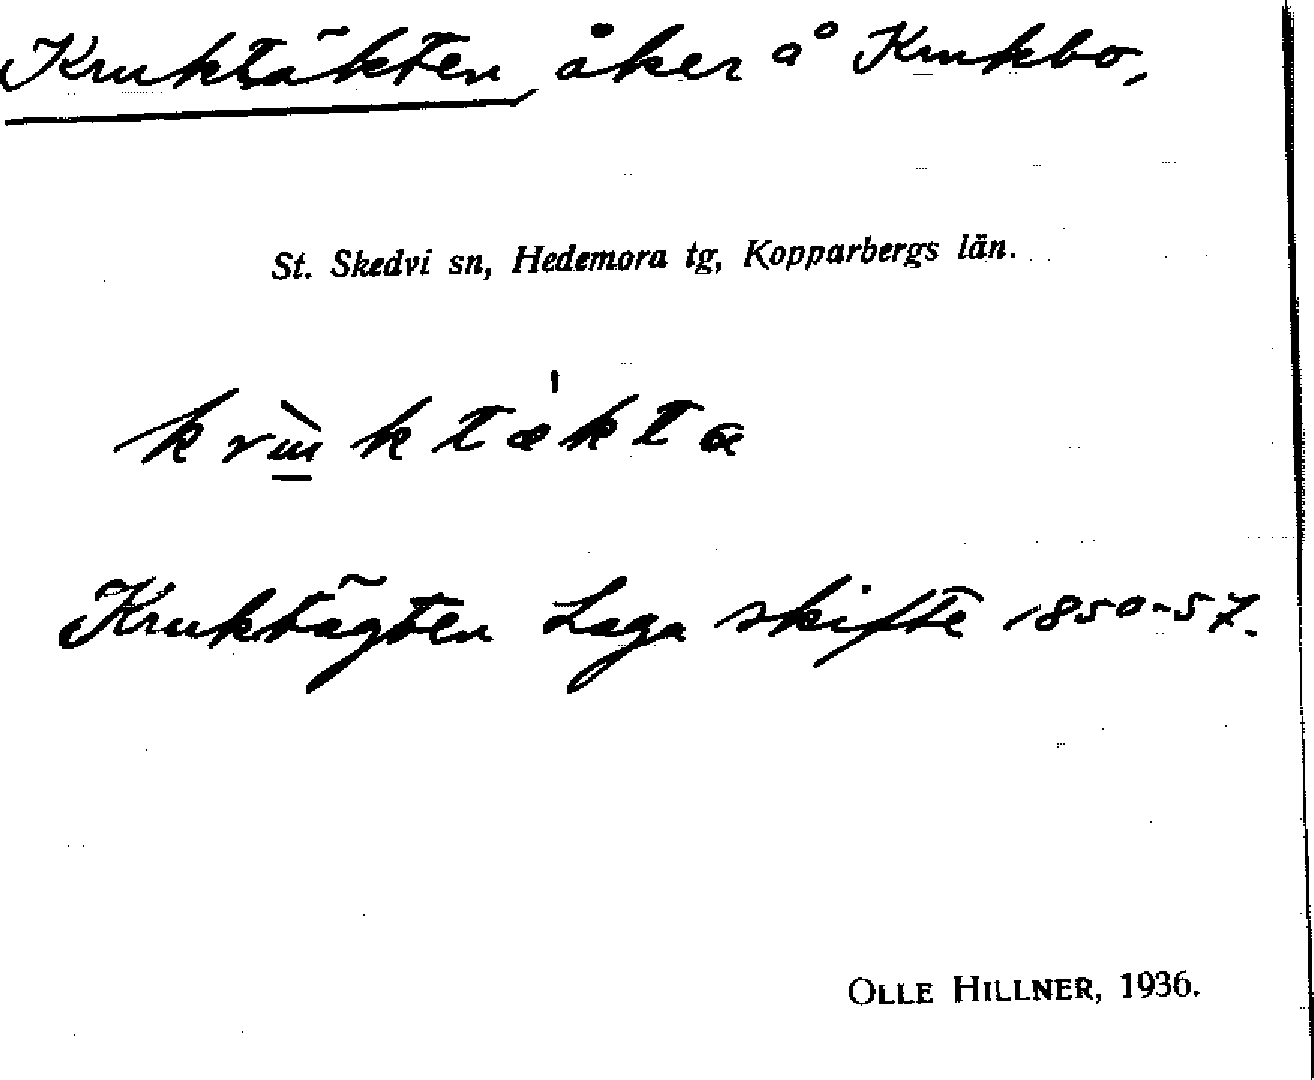 Kruktäkten, åker å Krukbo,
St. Skedvi sn, Hedemora tg, Kopparbergs län.
Kruktägten Laga skifte 1850-57.
OLLE HILLNER, 1936.